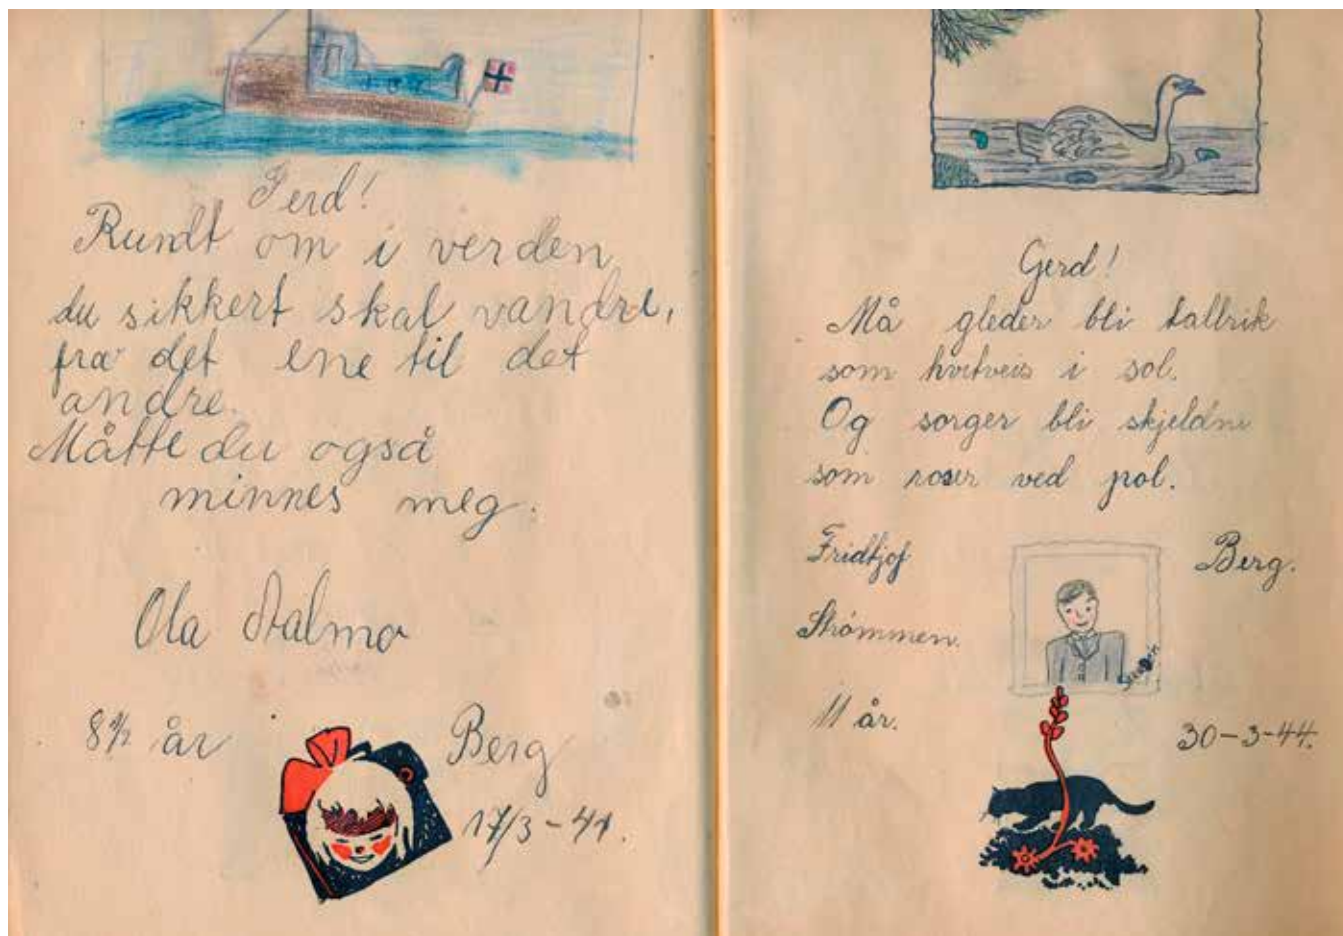 Gerd!
Rundt om i verden
du sikkert skal vandre,
fra det ene til det
andre.
Måtte du også
minnes meg.
Ola
8 1/2 år Berg
17/3-41.
Gerd!
Må gleder bli tallrik
som hvitveis i sol.
Og sorger bli skjeldne
som roser ved pol.
Fridtjof Berg.
Strømmen.
11 år. 30-3-44.